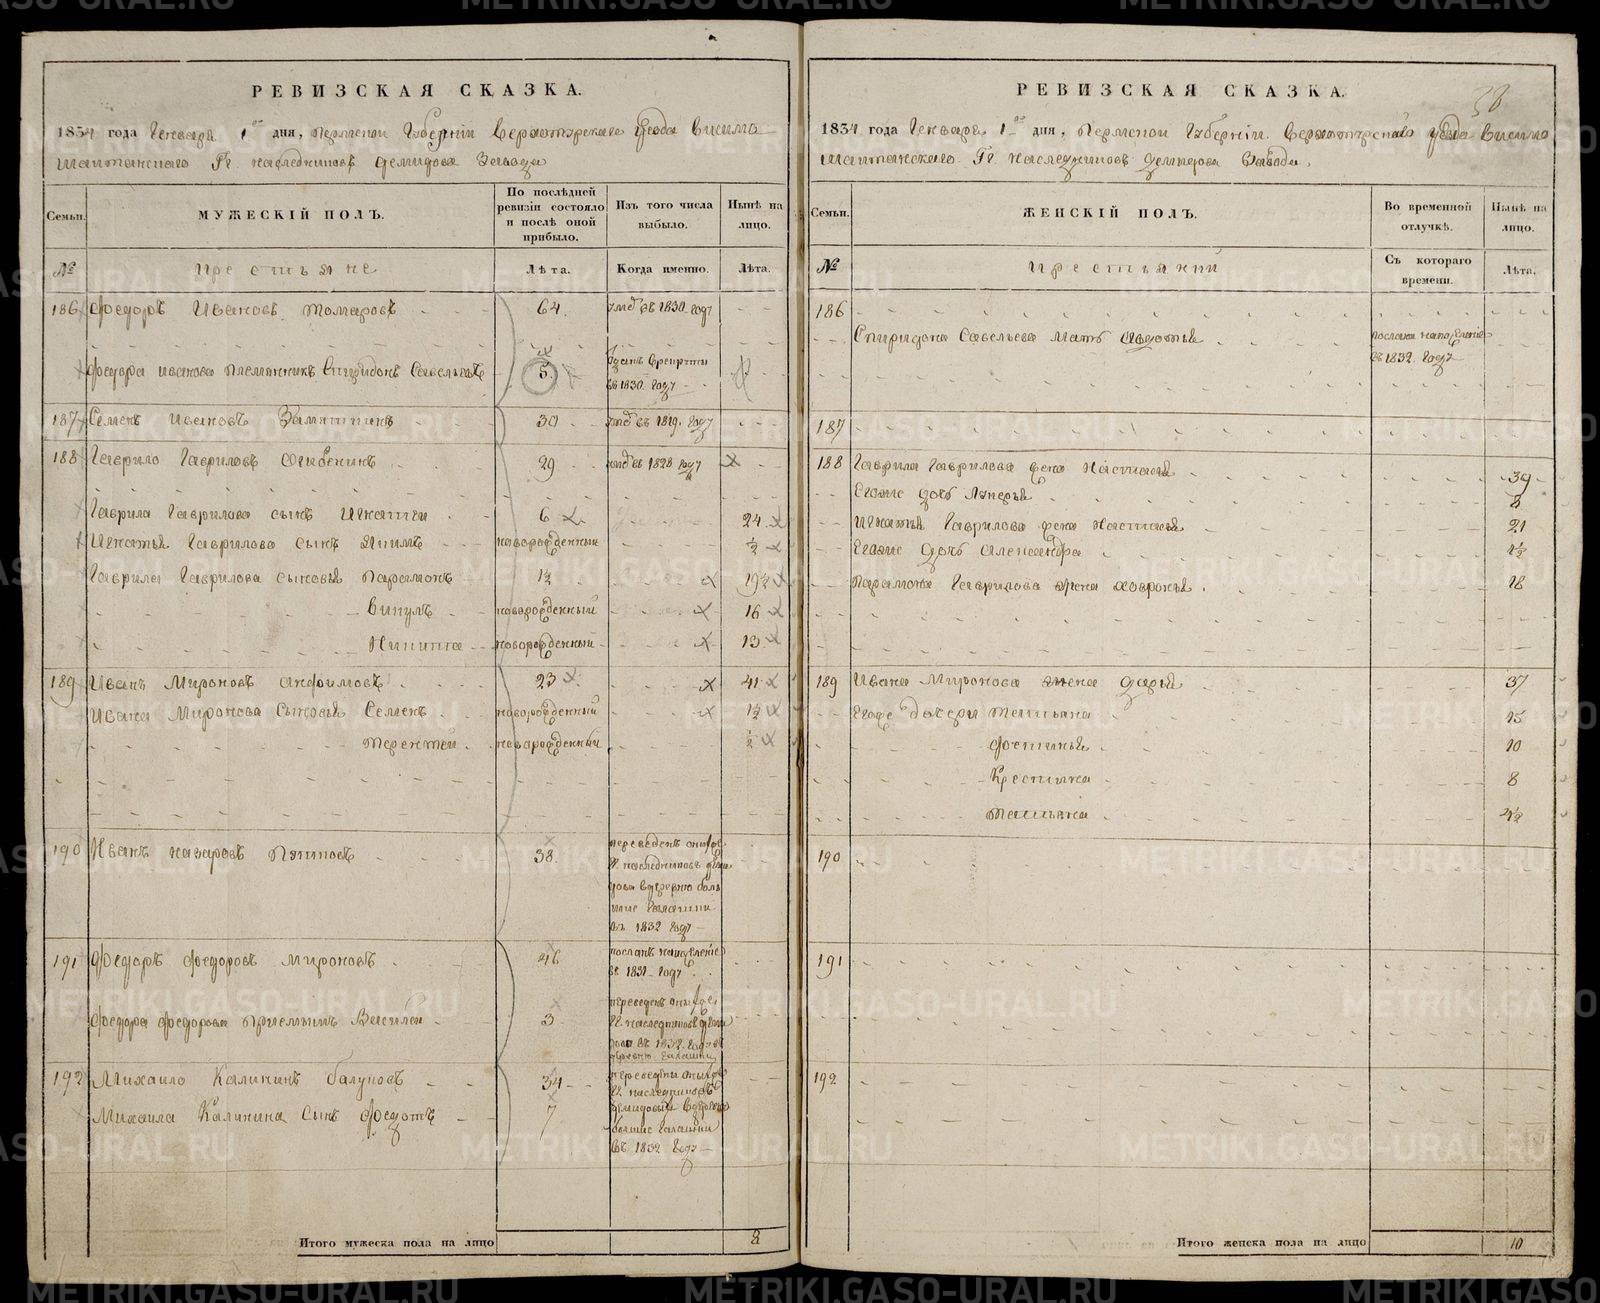 РЕВИЗСКАЯ СКАЗКА.
1834 года Генваря 1го дня, Пермской Губернiи Верхотурскаго уезда Висимо-
шайтанскаго Гг. наследниковъ Демидова завода
Семьи. МУЖЕСКIЙ ПОЛЪ. По послѣдней ревизiи состояло и послѣ оной прибыло. Изъ того числа выбыло. Нынѣ на лицо.
№ Крестьяне Лѣта. Когда именно. Лѣта.
186 Федоръ Ивановъ Комаровъ 64. въ 1830. году
Федора Иванова племянникъ Спиридонъ Савельевъ 5. въ рекруты
въ 1830. году
187 Семенъ Ивановъ Замятинъ 30 въ 1819. году
188 Гаврило Гавриловъ 29 въ 1828 году
Гаврила Гаврилова сынъ Игнатей 6 24
Игнатья Гаврилова сынъ Якимъ новорожденный ½
Гаврила Гаврилова сыновья Парамонъ 1½ 19½
Викулъ новорожденный 16
Никита новорожденный 13
189 Иванъ Мироновъ Анфимовъ 23 41
Ивана Миронова сыновья Семенъ новорожденный 1½
Терентей новорожденный ½
190 Иванъ Назаровъ 38. переведенъ
Гг. наследниковъ
въ деревню боль
шие Галашки
въ 1832 году
191 Федоръ Федоровъ Мироновъ 46 посланъ на поселенiе
въ 1831 году
Федора Федорова прiемышъ Василей 3 переведенъ
Гг. наследниковъ
въ 1832. году въ
деревню Галашки
192 Михайло Калининъ Балуковъ 34 переведены
Гг. наследниковъ
Михаила Калинина сынъ Федотъ 7 Демидовыхъ въ деревню
большие Галашки
въ 1832 году
Итого мужеска пола на лицо 8
РЕВИЗСКАЯ СКАЗКА.
38
1834 года Генваря 1го дня, Пермской Губернiи Верхотурскаго уезда Висимо
шайтанскаго Гг. наследниковъ Демидова завода.
Семьи. ЖЕНСКIЙ ПОЛЪ. Во временной отлучкѣ. Нынѣ на лицо.
№ Крестьянки Съ котораго времени. Лѣта.
186
Спиридона Савельева мать Авдотья послана на поселенiе
въ 1832. году
187
188 Гаврила Гаврилова жена Настасья 39
Егоже дочь Лукерья 8
Игнатья Гаврилова жена Настасья 21
Егоже дочь Александра 1½
Парамона Гаврилова жена Хавронья. 18
189 Ивана Миронова жена Дарья 37
Егоже дочери Татьяна 15
Фотинья 10
Крестина 8
Татьяна 4½
190
191
192
Итого женска пола на лицо 10
METRIKI.GASO-URAL.RU